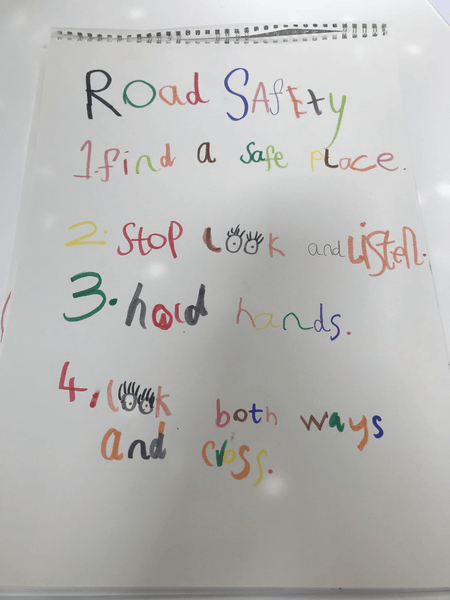 Road SAfEty
1.find a safe place.
2. Stop Look and Listen.
3. hold hands.
4. look both ways
and cross.